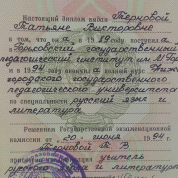 Настоящий диплом выдан Терновой
Татьяне Викторовне
в том, что она в 19 году поступила в
Горьковский государственный
педагогический институт им. М. Горького
и в 1994 году окончила полный курс Ниже-
городского государственного
педагогического университета
по специальности русский язык и
литература
Решением Государственной экзаменационной
комиссии от 20 июня 1994 г.
Терновой Т. В.
учитель
русского языка и литературы